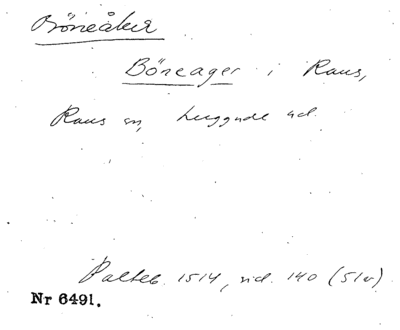 Böneåker
Böneager i Raus,
Raus sn, Luggude hd.
Palteb. 1514, sid. 140 (51v)
Nr 6491.